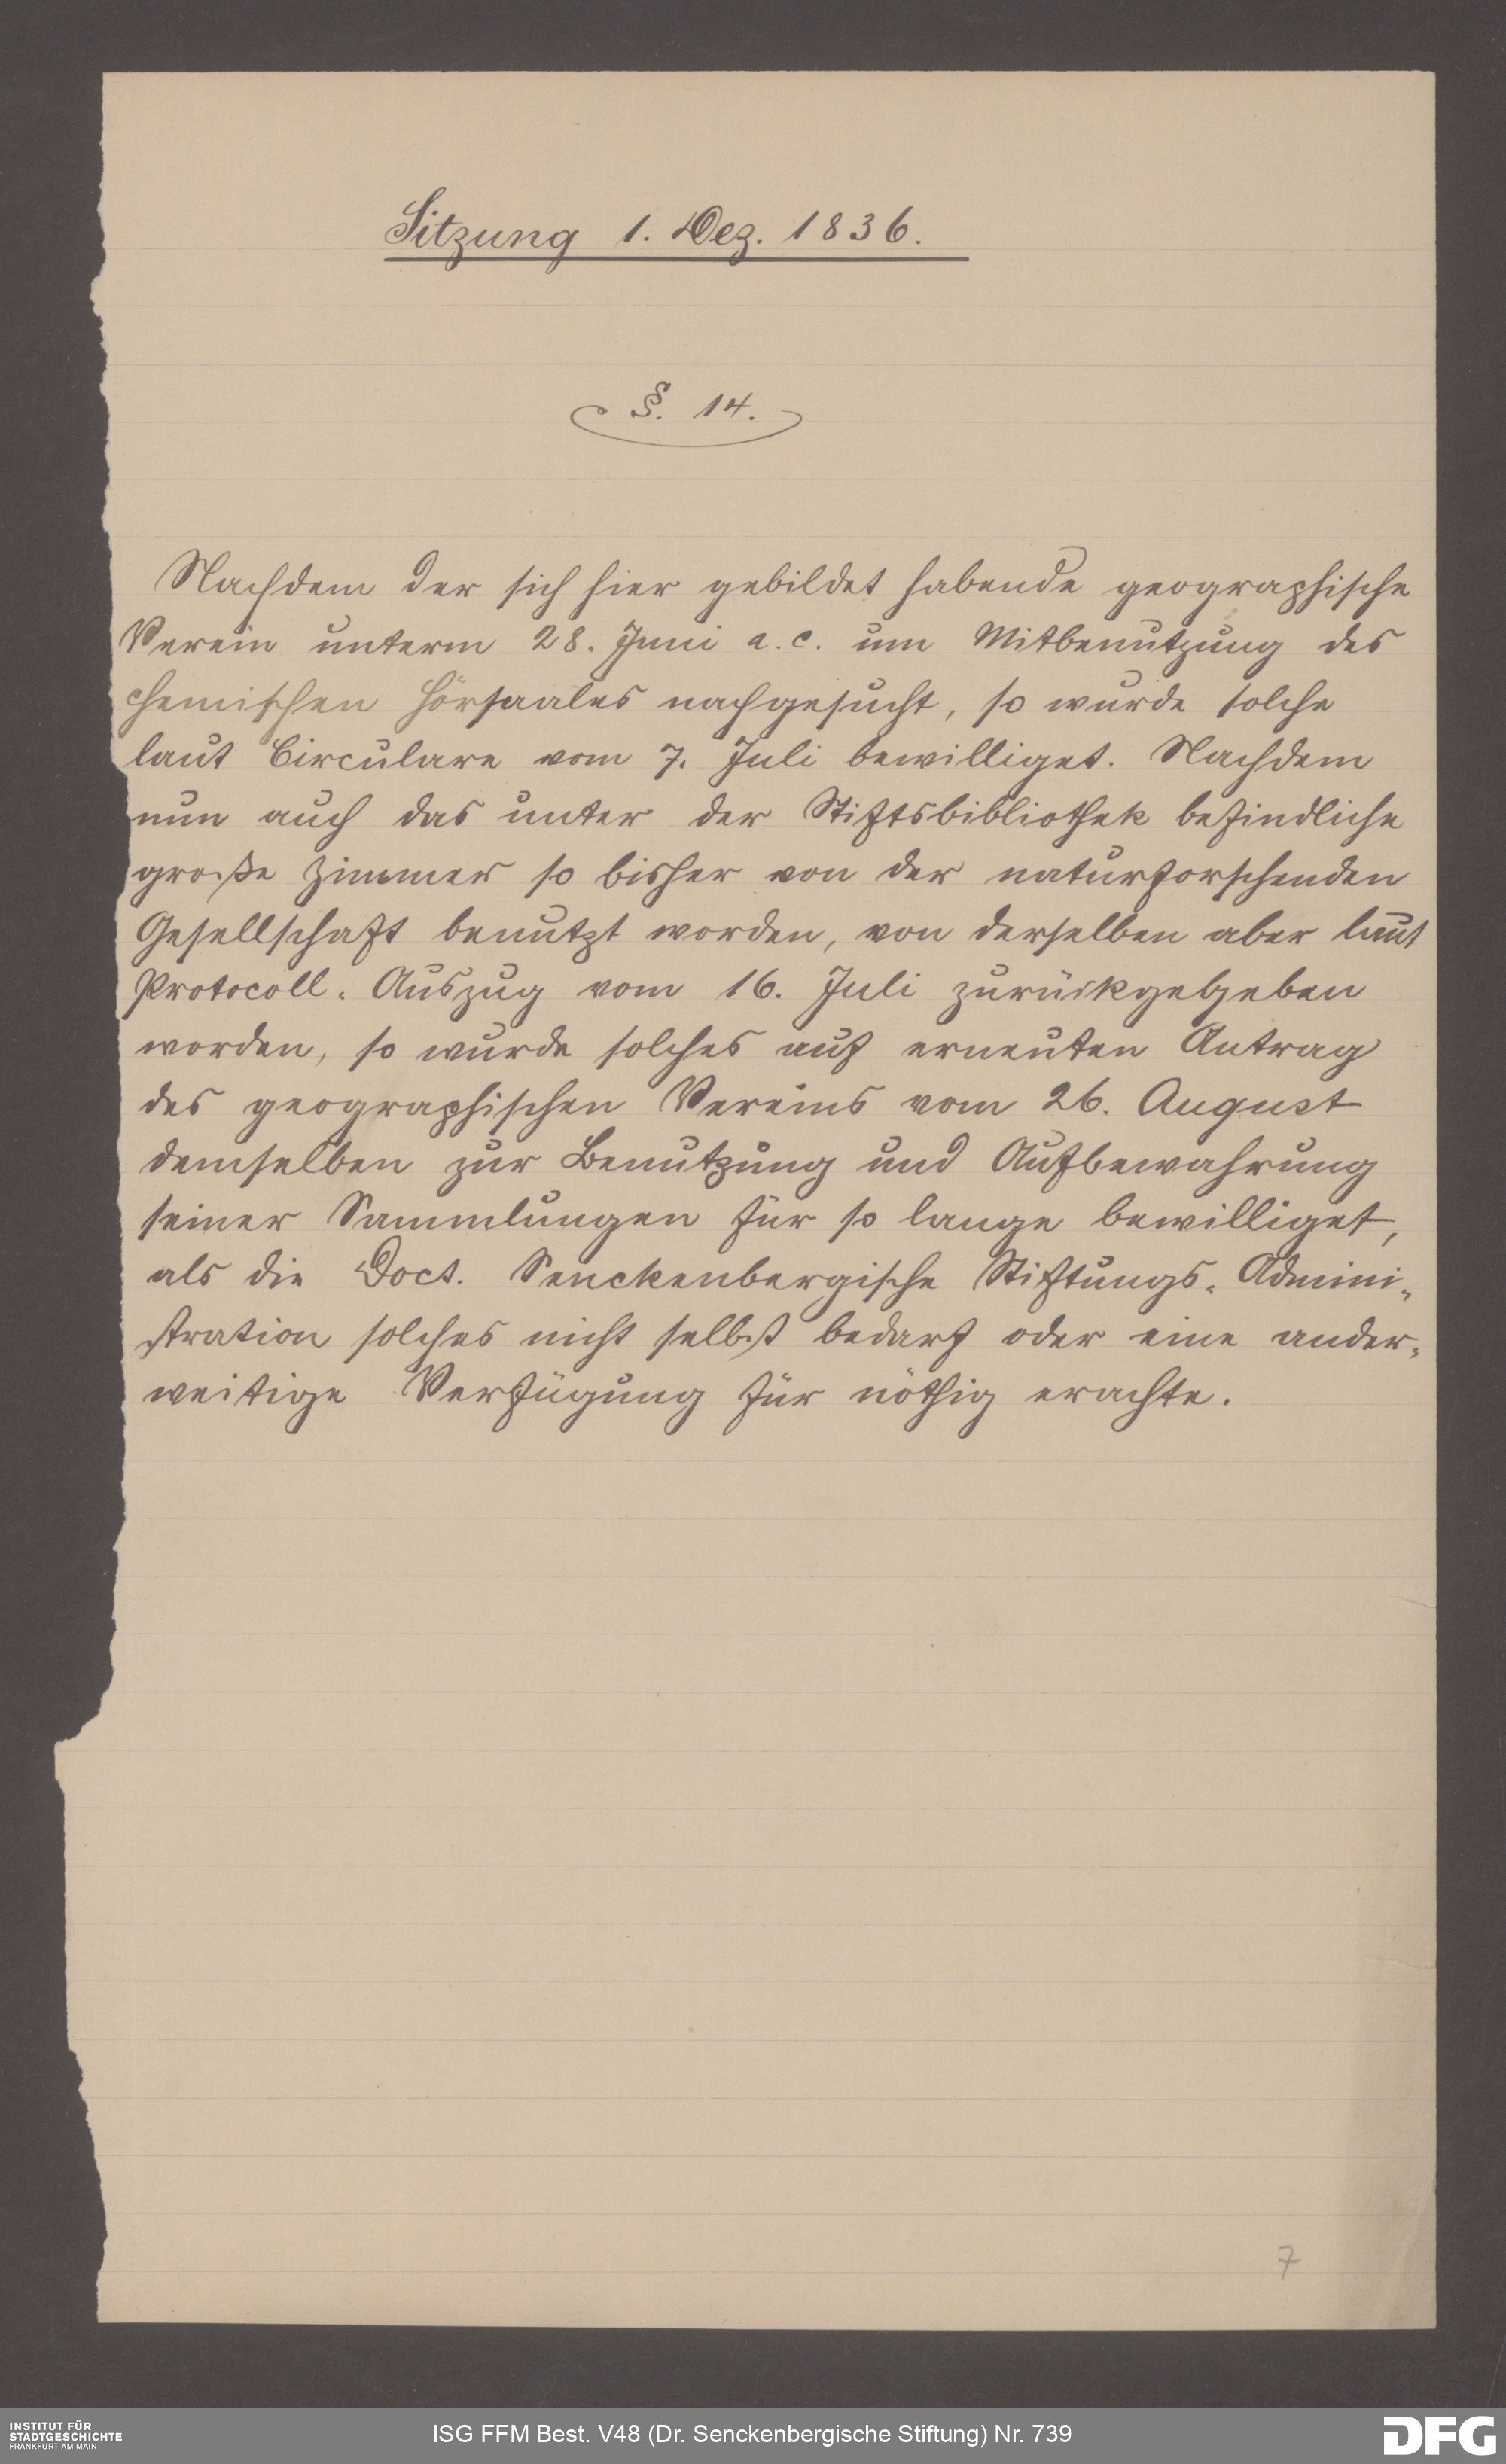 Sitzung 1. Dez. 1836.
§. 14.
Nachdem der sich hier gebildet habende geographische
Verein unterm 28. Juni a. c. um Mitbenutzung des
chemischen Hörsaales nachgesucht, so wurde solche
laut Circulare vom 7. Juli bewilliget. Nachdem
nun auch das unter der Stiftsbibliothek befindliche
große Zimmer so bisher von der naturforschenden
Gesellschaft benutzt worden, von derselben aber laut
Protocoll-Auszug vom 16. Juli zurückgegeben
worden, so wurde solches auf erneuten Antrag
des geographischen Vereins vom 26. August
demselben zur Benutzung und Aufbewahrung
seiner Sammlungen für so lange bewilliget,
als die Doct. Senckenbergische Stiftungs-Admini-
stration solches nicht selbst bedarf oder eine ander-
weitige Verfügung für nöthig erachte.
7
INSTITUT FÜR
STADTGESCHICHTE
FRANKFURT AM MAIN
ISG FFM Best. V48 (Dr. Senckenbergische Stiftung) Nr. 739
DFG